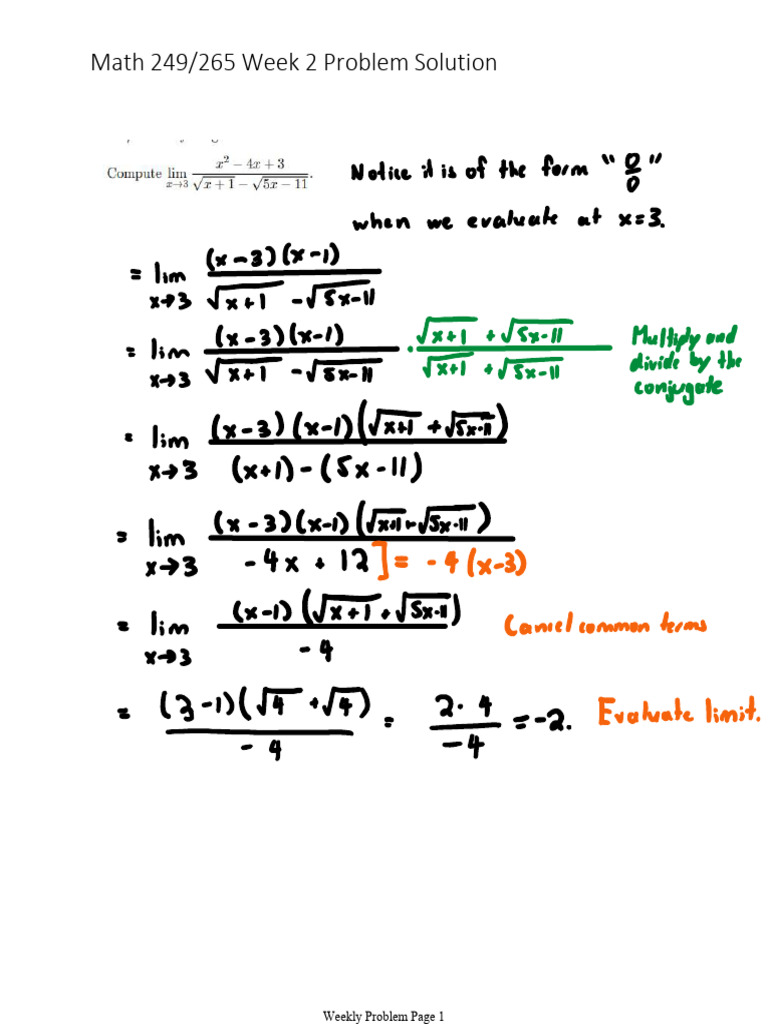 Math 249/265 Week 2 Problem Solution
Compute lim x→3 (x² − 4x + 3)/(√(x + 1) − √(5x − 11)). Notice it is of the form "0/0"
when we evaluate at x=3.
= lim x→3 (x−3)(x−1)/(√(x+1) − √(5x−11))
= lim x→3 (x−3)(x−1)/(√(x+1) − √(5x−11)) · (√(x+1) + √(5x−11))/(√(x+1) + √(5x−11)) Multiply and
divide by the
conjugate
= lim x→3 (x−3)(x−1)(√(x+1) + √(5x−11))/((x+1)−(5x−11))
= lim x→3 (x−3)(x−1)(√(x+1) + √(5x−11))/(−4x + 12) ] = −4(x−3)
= lim x→3 (x−1)(√(x+1) + √(5x−11))/(−4) Cancel common terms
= (3−1)(√4 + √4)/(−4) = (2·4)/(−4) = −2. Evaluate limit.
Weekly Problem Page 1